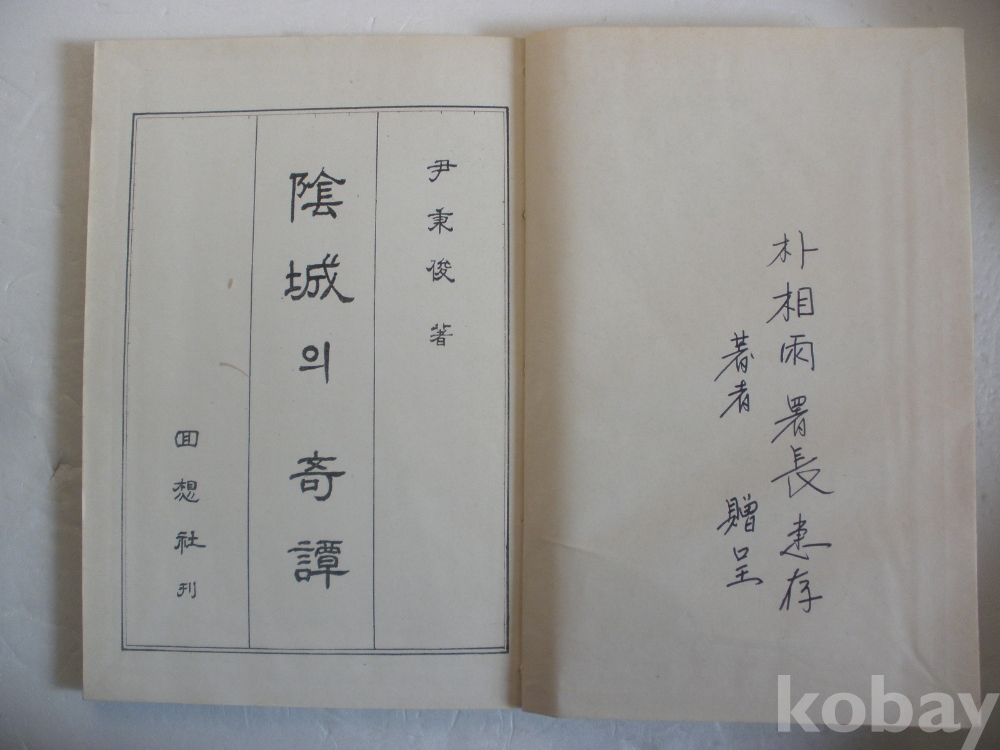 尹秉俊 著
陰城의 奇譚
回想社刊
朴相雨 署長 惠存
著者 贈呈
kobay